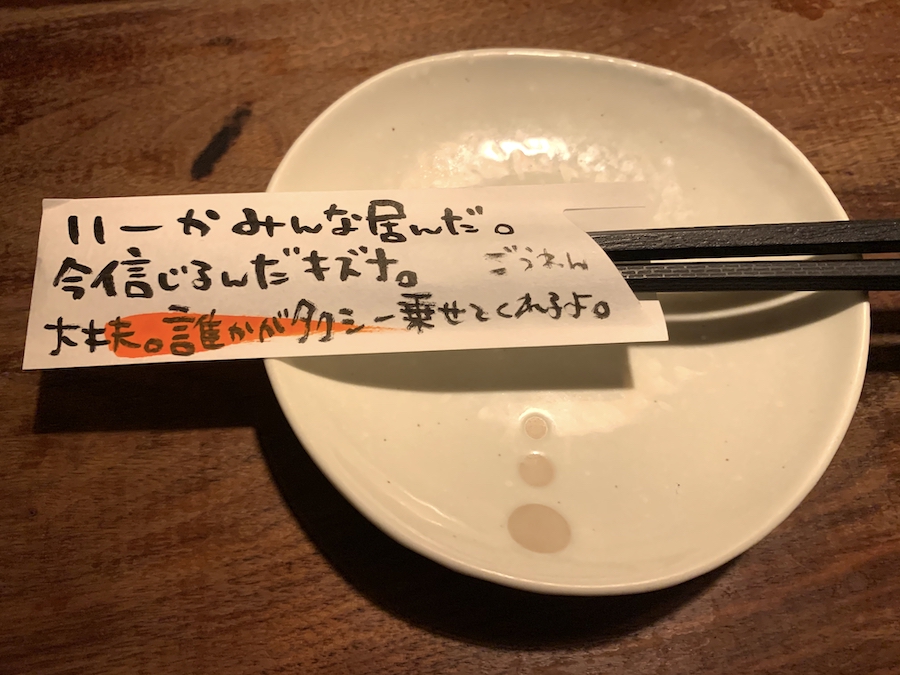 いーかみんな居んだ。
今信じるんだキズナ。
ごうわん
大丈夫。誰かがタクシー乗せとくれるよ。